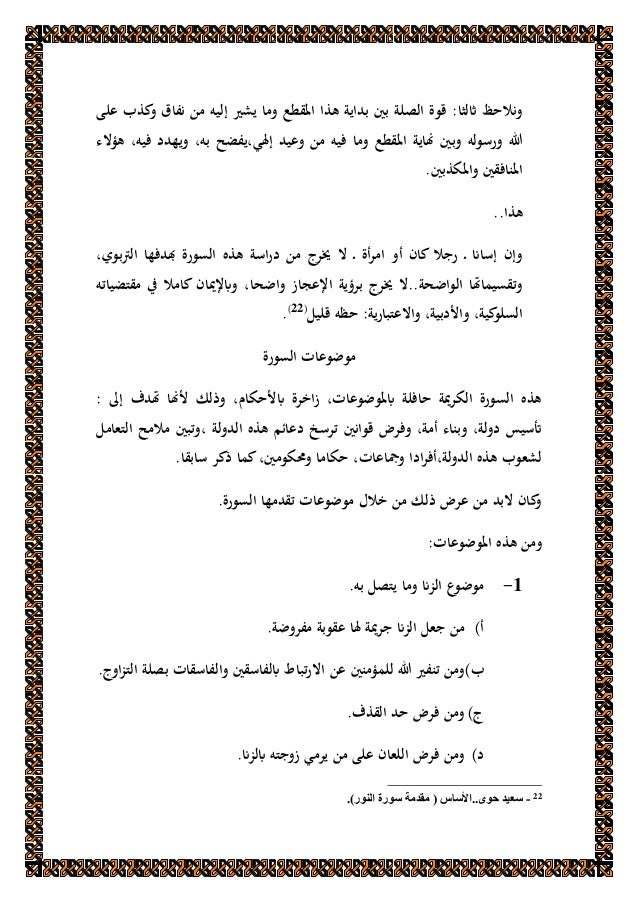 ونلاحظ ثالثا: قوة الصلة بين بداية هذا المقطع وما يشير إليه من نفاق وكذب على
الله ورسوله وبين نهاية المقطع وما فيه من وعيد إلهي،يفضح به، ويهدد فيه، هؤلاء
المنافقين والمكذبين.
هذا..
وإن إسانا ـ رجلا كان أو امرأة ـ لا يخرج من دراسة هذه السورة بهدفها التربوي،
وتقسيماتها الواضحة..لا يخرج برؤية الإعجاز واضحا، وبالإيمان كاملا في مقتضياته
السلوكية، والأدبية، والاعتبارية: حظه قليل(22).
موضوعات السورة
هذه السورة الكريمة حافلة بالموضوعات، زاخرة بالأحكام، وذلك لأنها تهدف إلى :
تأسيس دولة، وبناء أمة، وفرض قوانين ترسخ دعائم هذه الدولة ،وتبين ملامح التعامل
لشعوب هذه الدولة،أفرادا وجماعات، حكاما ومحكومين، كما ذكر سابقا.
وكان لابد من عرض ذلك من خلال موضوعات تقدمها السورة.
ومن هذه الموضوعات:
1– موضوع الزنا وما يتصل به.
أ) من جعل الزنا جريمة لها عقوبة مفروضة.
ب)ومن تنفير الله للمؤمنين عن الارتباط بالفاسقين والفاسقات بصلة التزاوج.
ج) ومن فرض حد القذف.
د) ومن فرض اللعان على من يرمي زوجته بالزنا.
22 - سعيد حوى..الأساس ( مقدمة سورة النور).